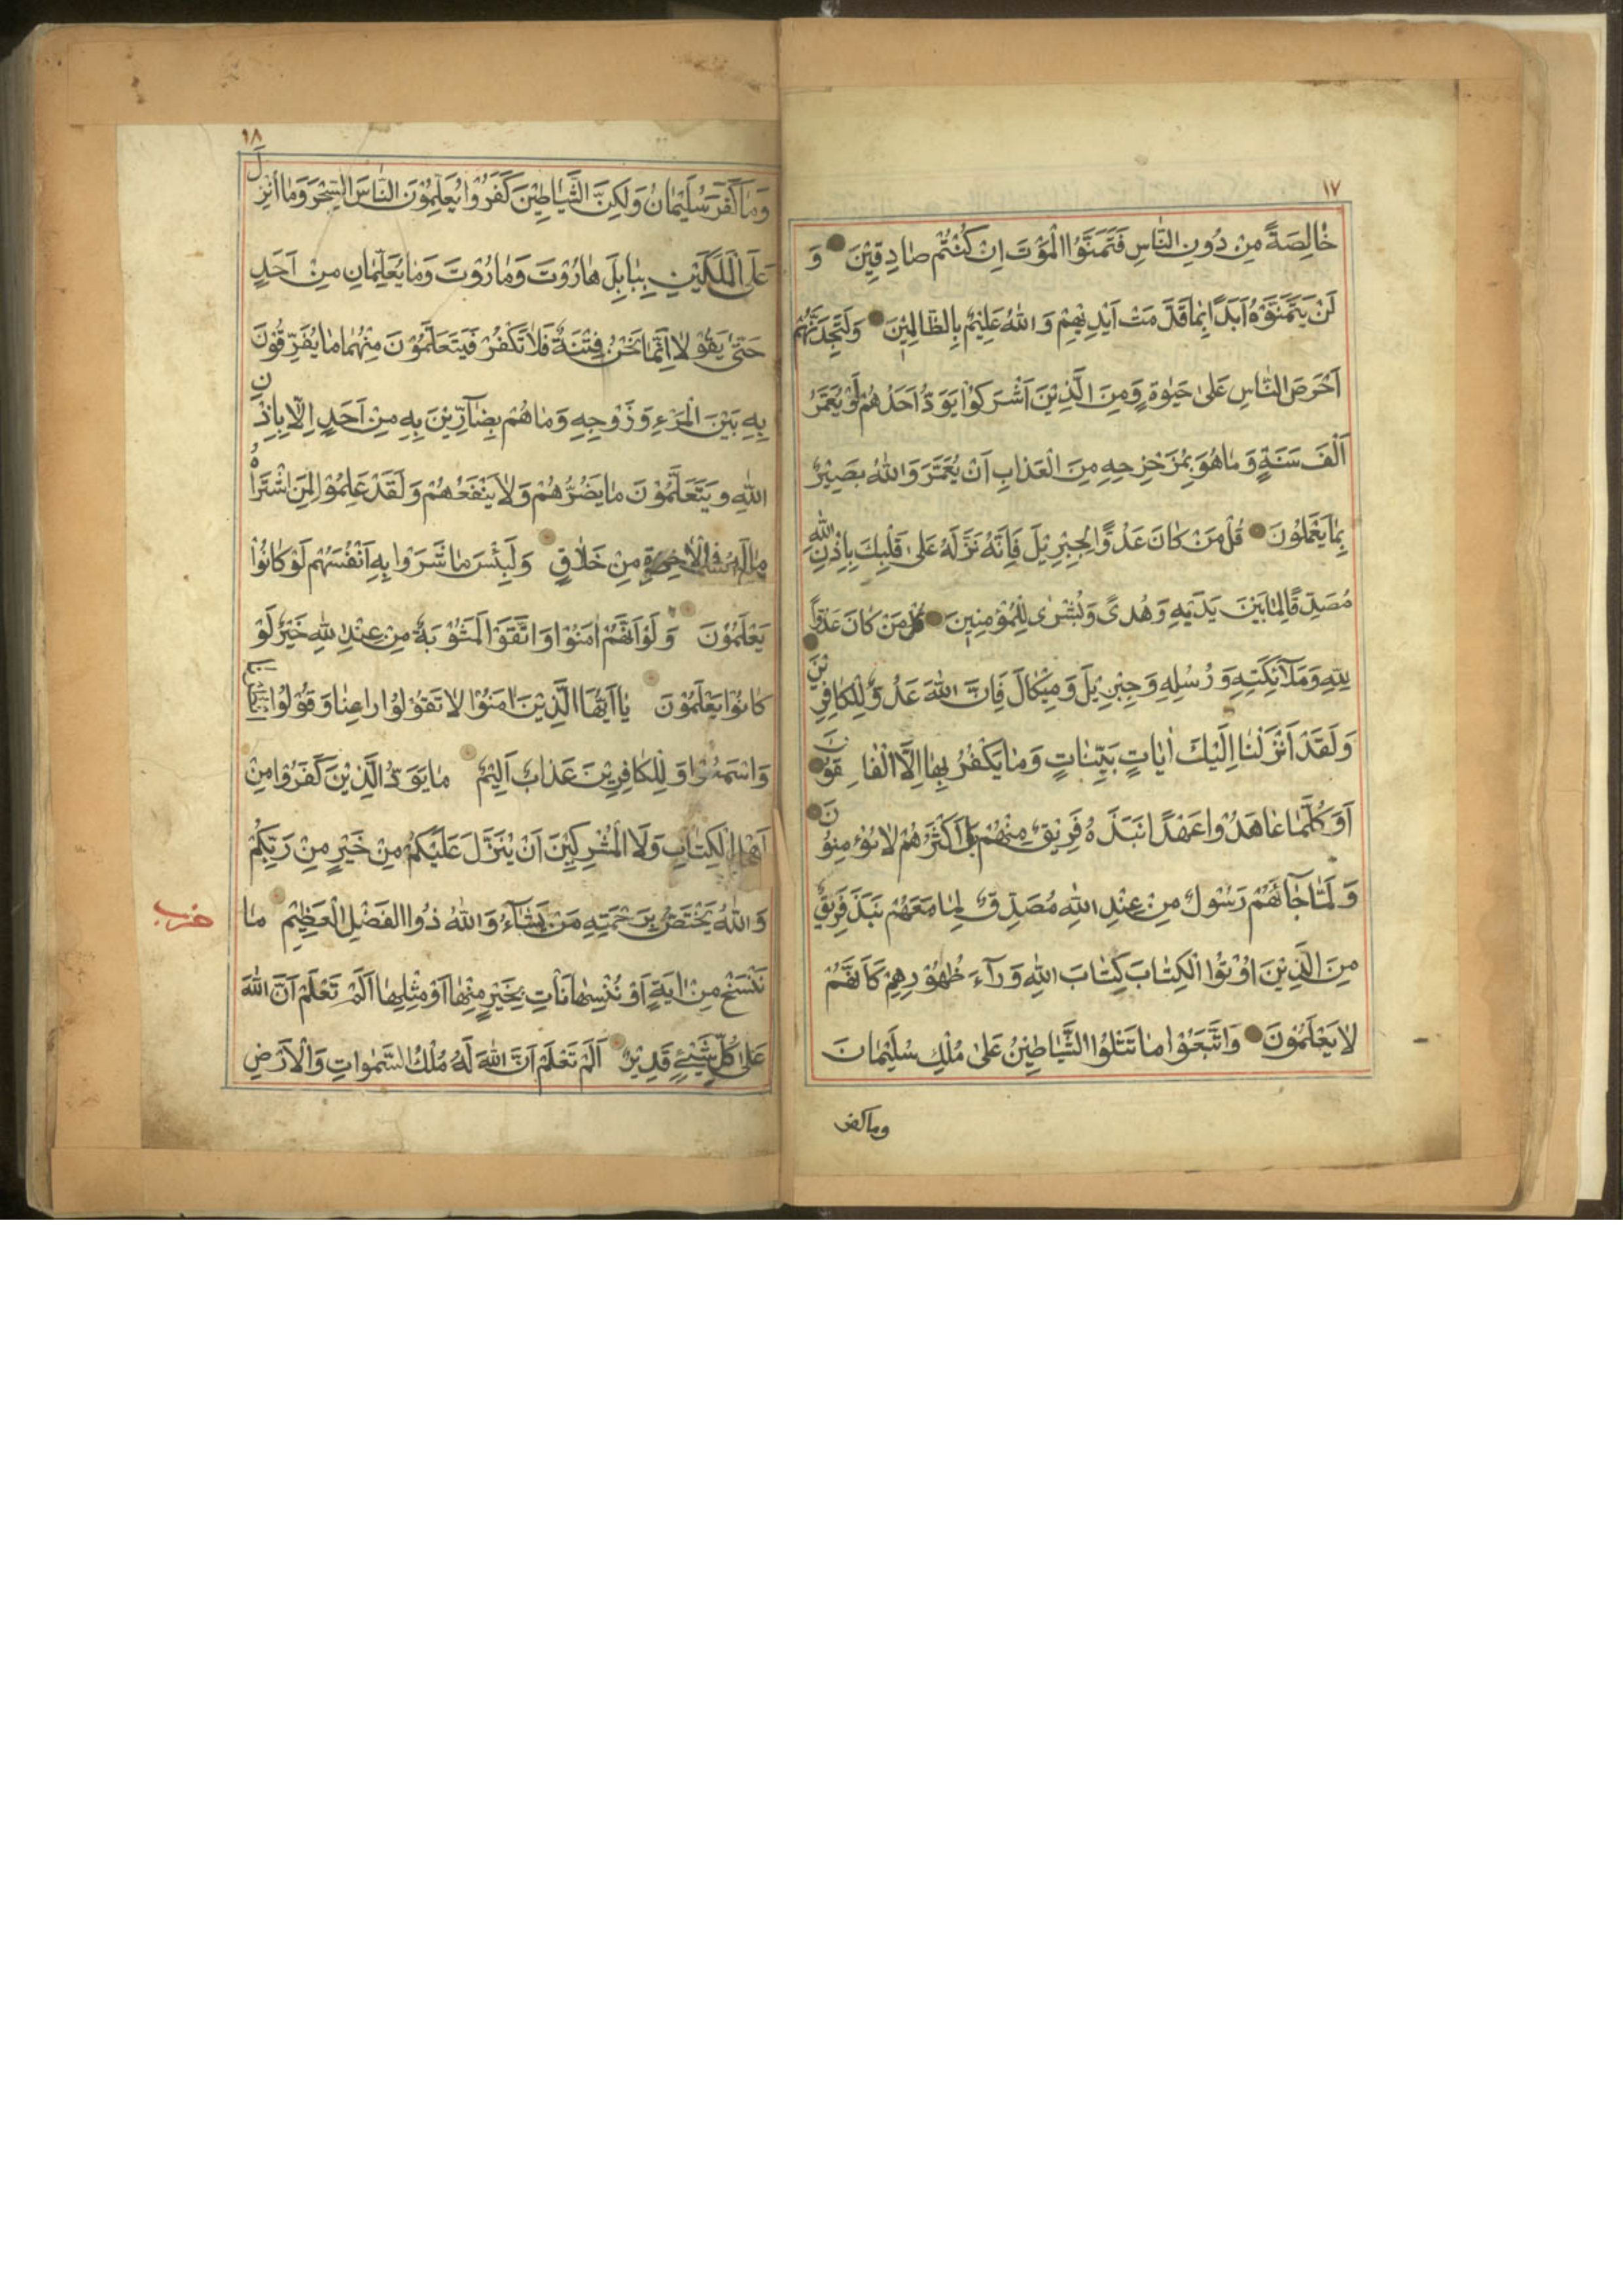 ١٧
خَالِصَةً مِنْ دُونِ النَّاسِ فَتَمَنَّوُا الْمَوْتَ اِنْ كُنْتُمْ صَادِقِيْنَ وَ
لَنْ يَتَمَنَّوْهُ اَبَدًا بِمَا قَدَّمَتْ اَيْدِيْهِمْ وَاللّٰهُ عَلِيْمٌ بِالظَّالِمِيْنَ وَلَتَجِدَنَّهُمْ
اَحْرَصَ النَّاسِ عَلٰى حَيٰوةٍ وَمِنَ الَّذِيْنَ اَشْرَكُوْا يَوَدُّ اَحَدُهُمْ لَوْ يُعَمَّرُ
اَلْفَ سَنَةٍ وَمَا هُوَ بِمُزَحْزِحِهِ مِنَ الْعَذَابِ اَنْ يُعَمَّرَ وَاللّٰهُ بَصِيْرٌ
بِمَا يَعْمَلُوْنَ قُلْ مَنْ كَانَ عَدُوًّا لِجِبْرِيْلَ فَاِنَّهُ نَزَّلَهُ عَلٰى قَلْبِكَ بِاِذْنِ اللّٰهِ
مُصَدِّقًا لِمَا بَيْنَ يَدَيْهِ وَهُدًى وَبُشْرٰى لِلْمُؤْمِنِيْنَ قُلْ مَنْ كَانَ عَدُوًّا
لِلّٰهِ وَمَلَآئِكَتِهِ وَرُسُلِهِ وَجِبْرِيْلَ وَمِيْكَالَ فَاِنَّ اللّٰهَ عَدُوٌّ لِلْكَافِرِيْنَ
وَلَقَدْ اَنْزَلْنَا اِلَيْكَ اٰيَاتٍ بَيِّنَاتٍ وَمَا يَكْفُرُ بِهَا اِلَّا الْفَاسِقُوْنَ
اَوَكُلَّمَا عَاهَدُوْا عَهْدًا نَبَذَهُ فَرِيْقٌ مِنْهُمْ بَلْ اَكْثَرُهُمْ لَا يُؤْمِنُوْنَ
وَلَمَّا جَآءَهُمْ رَسُوْلٌ مِنْ عِنْدِ اللّٰهِ مُصَدِّقٌ لِمَا مَعَهُمْ نَبَذَ فَرِيْقٌ
مِنَ الَّذِيْنَ اُوْتُوْا الْكِتَابَ كِتَابَ اللّٰهِ وَرَآءَ ظُهُوْرِهِمْ كَاَنَّهُمْ
لَا يَعْلَمُوْنَ وَاتَّبَعُوْا مَا تَتْلُوْا الشَّيَاطِيْنُ عَلٰى مُلْكِ سُلَيْمَانَ
وما كفر
١٨
وَمَا كَفَرَ سُلَيْمَانُ وَلٰكِنَّ الشَّيَاطِيْنَ كَفَرُوْا يُعَلِّمُوْنَ النَّاسَ السِّحْرَ وَمَا اُنْزِلَ
عَلَى الْمَلَكَيْنِ بِبَابِلَ هَارُوْتَ وَمَارُوْتَ وَمَا يُعَلِّمَانِ مِنْ اَحَدٍ
حَتّٰى يَقُوْلَا اِنَّمَا نَحْنُ فِتْنَةٌ فَلَا تَكْفُرْ فَيَتَعَلَّمُوْنَ مِنْهُمَا مَا يُفَرِّقُوْنَ
بِهِ بَيْنَ الْمَرْءِ وَزَوْجِهِ وَمَا هُمْ بِضَآرِّيْنَ بِهِ مِنْ اَحَدٍ اِلَّا بِاِذْنِ
اللّٰهِ وَيَتَعَلَّمُوْنَ مَا يَضُرُّهُمْ وَلَا يَنْفَعُهُمْ وَلَقَدْ عَلِمُوْا لَمَنِ اشْتَرَاهُ
مَا لَهُ فِى الْاٰخِرَةِ مِنْ خَلَاقٍ وَلَبِئْسَ مَا شَرَوْا بِهِ اَنْفُسَهُمْ لَوْ كَانُوْا
يَعْلَمُوْنَ وَلَوْ اَنَّهُمْ اٰمَنُوْا وَاتَّقَوْا لَمَثُوْبَةٌ مِنْ عِنْدِ اللّٰهِ خَيْرٌ لَوْ
كَانُوْا يَعْلَمُوْنَ يَا اَيُّهَا الَّذِيْنَ اٰمَنُوْا لَا تَقُوْلُوْا رَاعِنَا وَقُوْلُوْا
وَاسْمَعُوْا وَلِلْكَافِرِيْنَ عَذَابٌ اَلِيْمٌ مَا يَوَدُّ الَّذِيْنَ كَفَرُوْا مِنْ
اَهْلِ الْكِتَابِ وَلَا الْمُشْرِكِيْنَ اَنْ يُنَزَّلَ عَلَيْكُمْ مِنْ خَيْرٍ مِنْ رَبِّكُمْ
وَاللّٰهُ يَخْتَصُّ بِرَحْمَتِهِ مَنْ يَشَآءُ وَاللّٰهُ ذُوا الْفَضْلِ الْعَظِيْمِ مَا
نَنْسَخْ مِنْ اٰيَةٍ اَوْ نُنْسِهَا نَاْتِ بِخَيْرٍ مِنْهَا اَوْ مِثْلِهَا اَلَمْ تَعْلَمْ اَنَّ اللّٰهَ
عَلٰى كُلِّ شَيْئٍ قَدِيْرٌ اَلَمْ تَعْلَمْ اَنَّ اللّٰهَ لَهُ مُلْكُ السَّمٰوَاتِ وَالْاَرْضِ